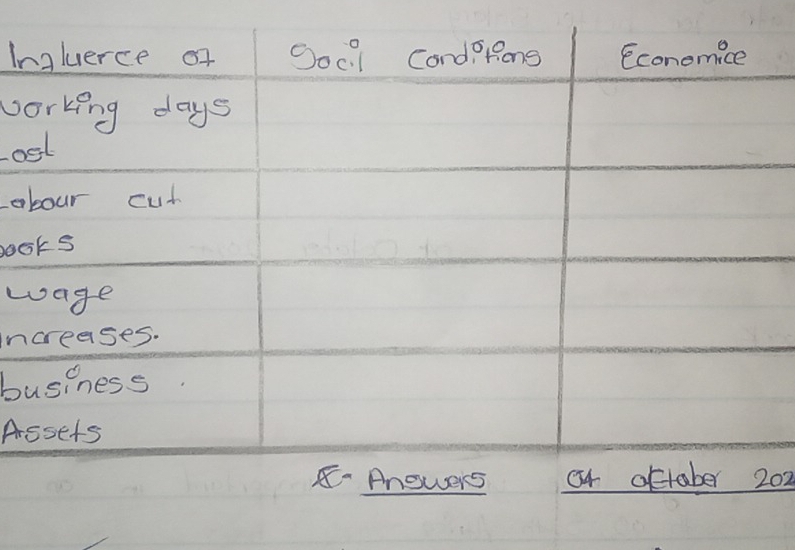 Influerce of Socil Conditions Economice
working days
Lost
Labour cut
books
wage
increases.
business
Assets
E- Answers 04 oktober 202